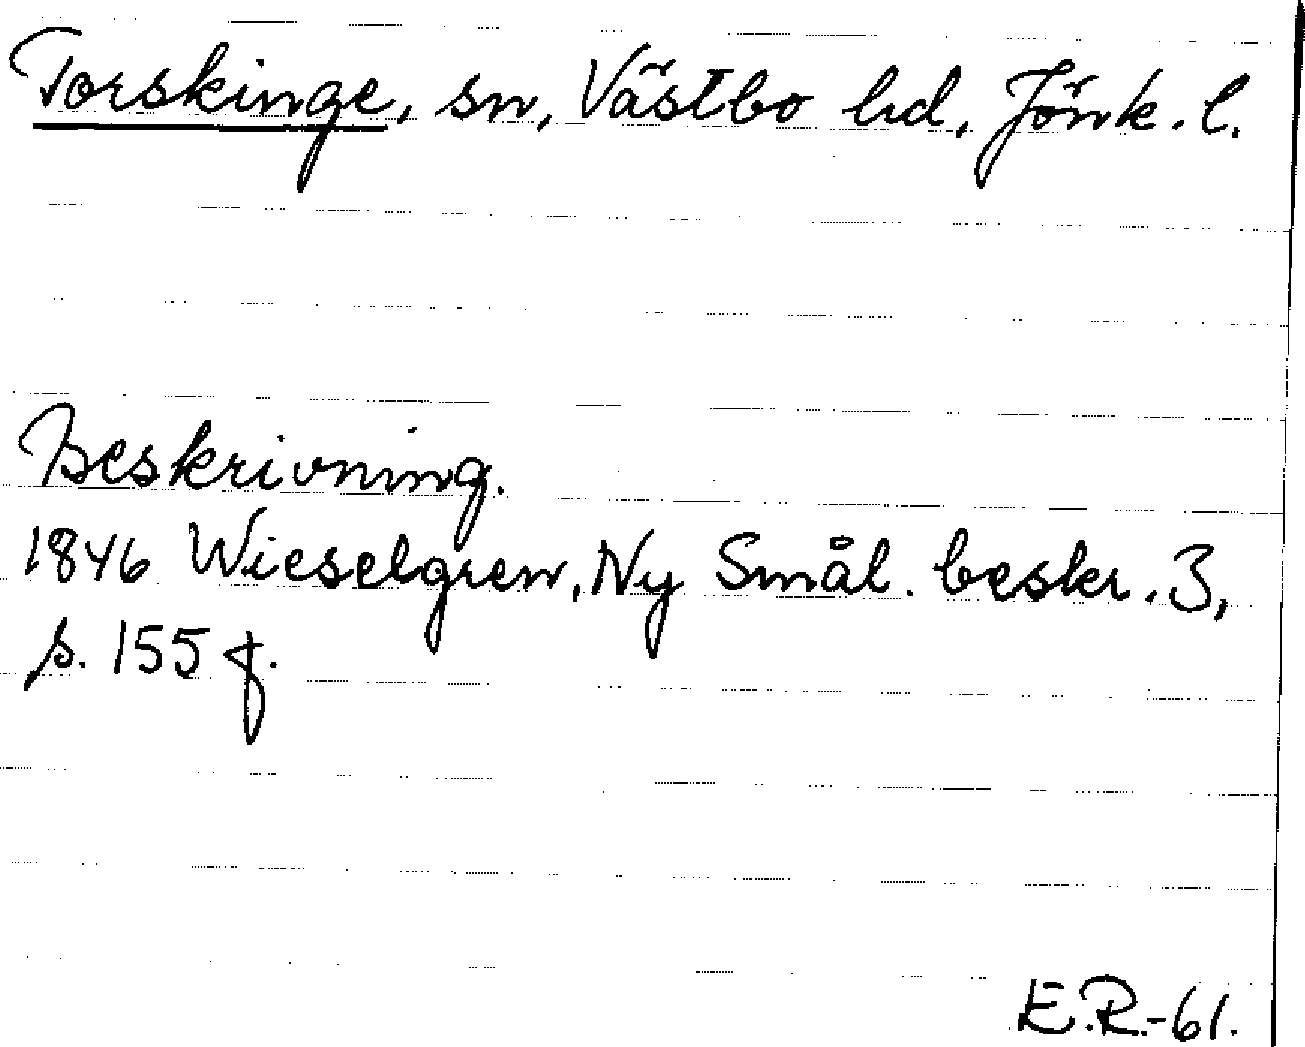 Torskinge, sn, Västbo hd, Jönk. l.
Beskrivning.
1846 Wieselgren, Ny Smål. beskr. 3,
s. 155 f.
E.R.-61.